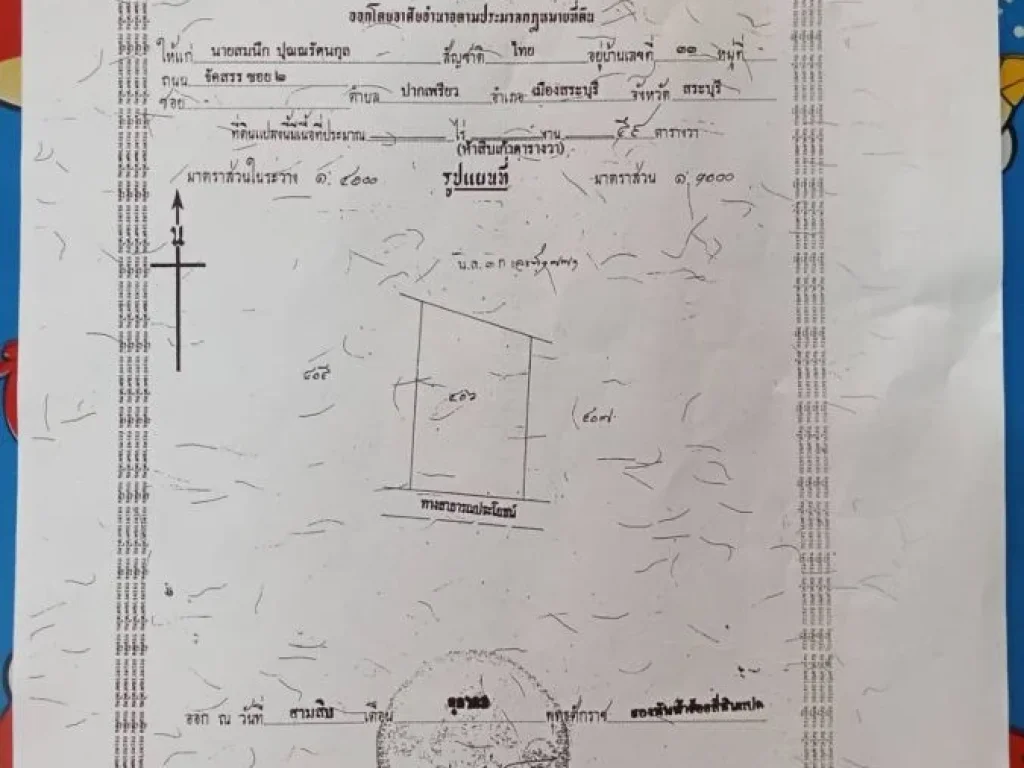 ออกโดยอาศัยอำนาจตามประมวลกฎหมายที่ดิน
ให้แก่ นายสมนึก ปุณณรัตนกุล สัญชาติ ไทย อยู่บ้านเลขที่ ๓๓ หมู่ที่
ถนน จัดสรร ซอย ๒
ซอย ตำบล ปากเพรียว อำเภอ เมืองสระบุรี จังหวัด สระบุรี
ที่ดินแปลงนี้มีเนื้อที่ประมาณ ไร่ งาน ๕๙ ตารางวา
(ห้าสิบเก้าตารางวา)
มาตราส่วนในระวาง ๑:๔๐๐๐ รูปแผนที่ มาตราส่วน ๑:๑๐๐๐
น
น.ส. ๓ ก เลขที่
๔๐๕
๔๐๖
๔๐๗
ทางสาธารณประโยชน์
ออก ณ วันที่ สามสิบ เดือน ตุลาคม พุทธศักราช สองพันห้าร้อยสี่สิบแปด